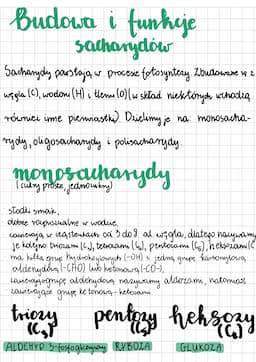 Budowa i funkcje
sacharydów
Sacharydy powstają w procesie fotosyntezy. Zbudowane są z
węgla (C), wodoru (H) i tlenu (O) (w skład niektórych wchodzą
również inne pierwiastki). Dzielimy je na: monosacha-
rydy, oligosacharydy i polisacharydy.
monosacharydy
(cukry proste, jednocukry)
słodki smak,
dobrze rozpuszczalne w wodzie,
zawierają w cząsteczkach od 3 do 8 at. węgla, dlatego nazywamy
je kolejno triozami (C₃), tetrozami (C₄), pentozami (C₅), heksozami (C
ma kilka grup hydroksylowych (-OH) i jedną grupę karbonylową
aldehydową (-CHO) lub ketonową (-CO-),
zawierające grupę aldehydową nazywamy aldozami, natomiast
zawierające grupę ketonową - ketozami.
triozy pentozy heksozy
(C₃) (C₅) (C₆)
ALDEHYD 3-fosfoglicerynowy RYBOZA GLUKOZA